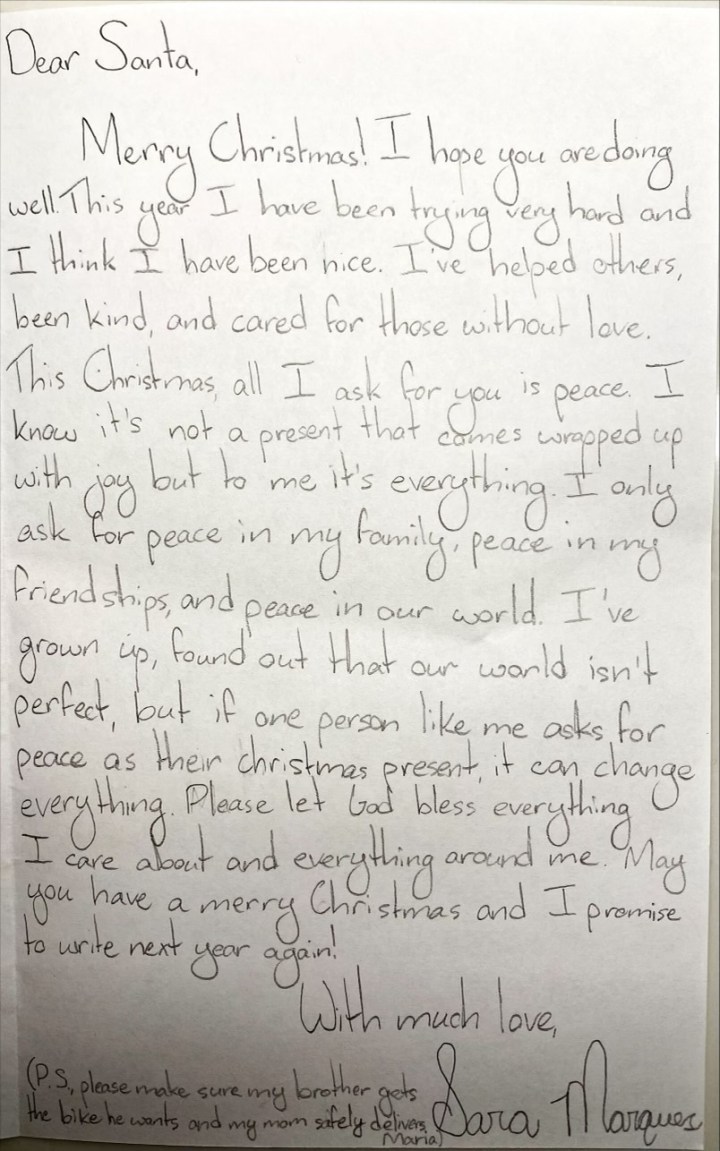 Dear Santa,
Merry Christmas! I hope you are doing
well. This year I have been trying very hard and
I think I have been nice. I've helped others,
been kind, and cared for those without love.
This Christmas, all I ask for you is peace. I
know it's not a present that comes wrapped up
with joy but to me it's everything. I only
ask for peace in my family, peace in my
friendships, and peace in our world. I've
grown up, found out that our world isn't
perfect, but if one person like me asks for
peace as their christmas present, it can change
everything. Please let God bless everything
I care about and everything around me. May
you have a merry Christmas and I promise
to write next year again!
With much love,
(P.S., please make sure my brother gets
the bike he wants and my mom safely delivers
Maria)
Sara Marquez